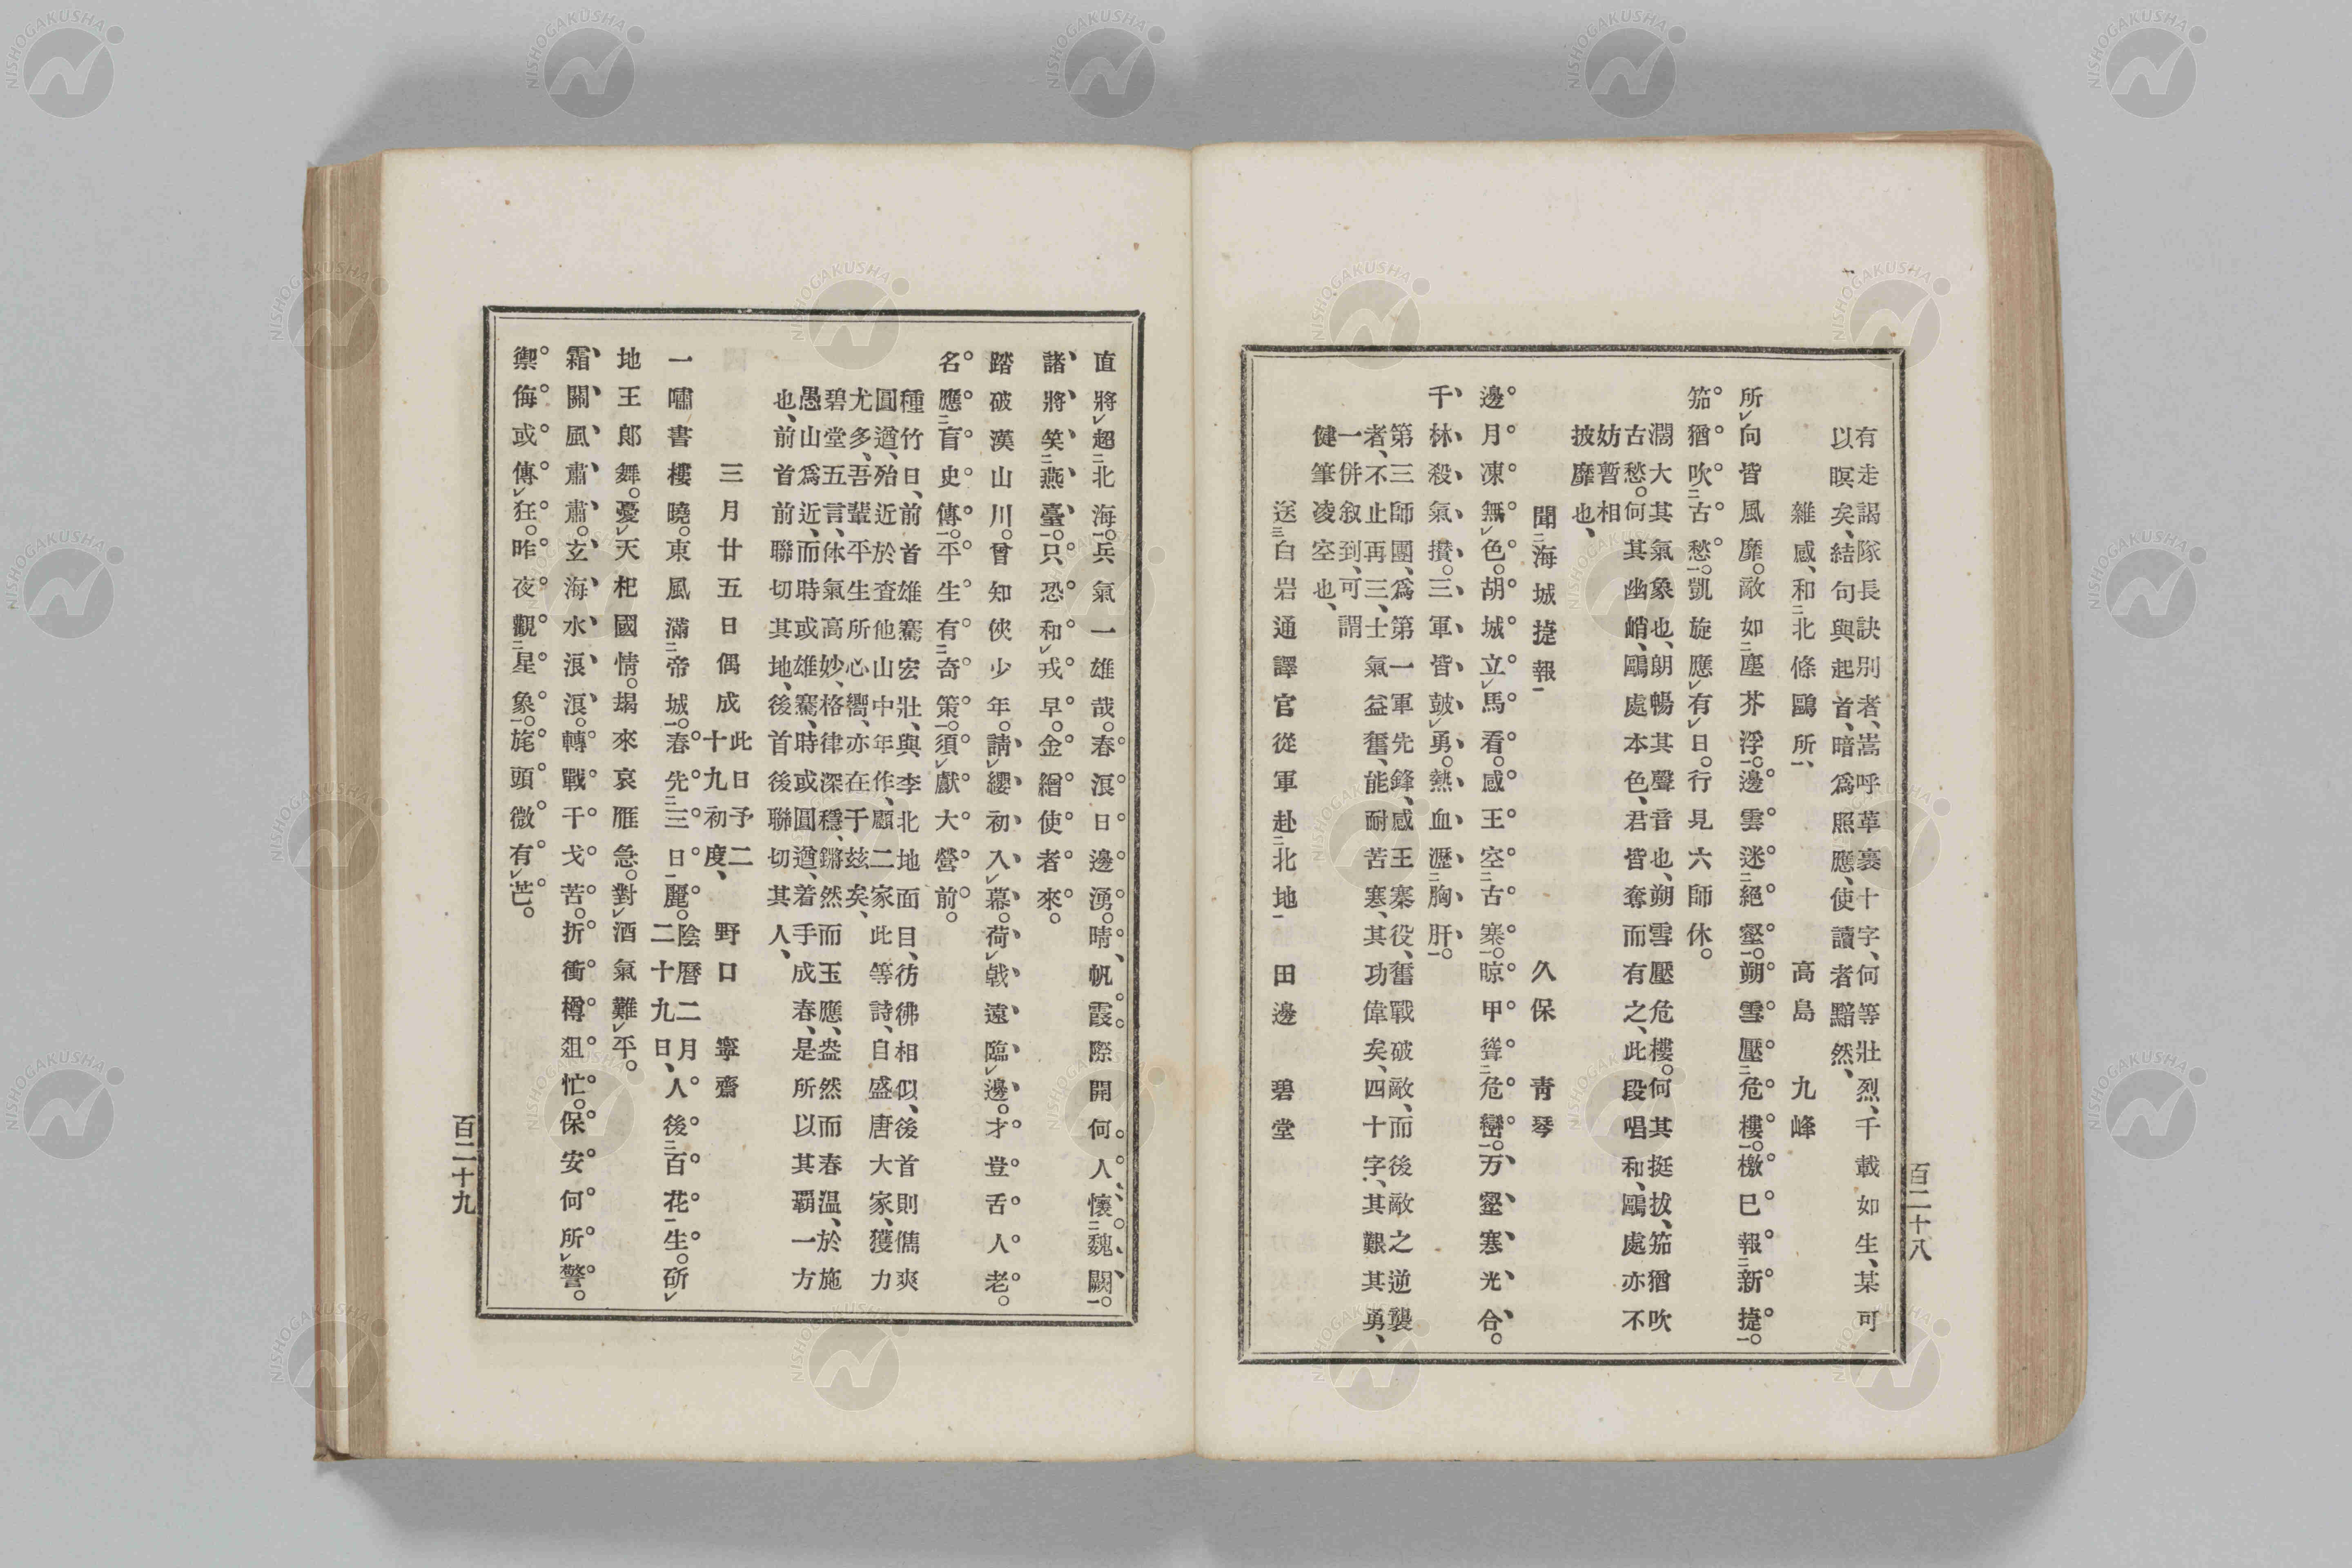 有走謁隊長訣別者、嵩呼革裹十字、何等壯烈、千載如生、某可
以瞑矣、結句與起首、暗爲照應、使讀者黯然、
雜感、和二北條鷗所一、　高島九峰
所レ向皆風靡。敵如二塵芥浮一。邊雲迷二絕壑一。朔雪壓二危樓一。檄巳報二新捷一。
笳猶吹二古愁一。凱旋應レ有レ日。行見六師休。
濶大其氣象也、朗暢其聲音也、朔雪壓危樓。何其挺拔、笳猶吹
古愁。何其幽峭、鷗處本色、君皆奪而有之、此段唱和、鷗處亦不
妨暫相
披靡也、
聞二海城捷報一　久保青琴
邊月凍無レ色。胡城立レ馬看。感王空二古寨一。晾甲聳二危巒一。万壑寒光合。
千林殺氣攢。三軍皆鼓レ勇。熱血瀝二胸肝一。
第三師團、爲第一軍先鋒、感王寨役、奮戰破敵、而後敵之逆襲
者、不止再三、士氣益奮、能耐苦寒、其功偉矣、四十字、其艱其勇、
一併敍到、可謂
健筆凌空也、
送三白岩通譯官從軍赴二北地一　田邊碧堂
百二十八
直將レ超二北海一。兵氣一雄哉。春浪日邊湧。晴帆霞際開何人、懷二魏闕一。
諸將笑二燕臺一。只恐和レ戎早。金繒使者來。
踏破漢山川。曾知俠少年。請レ纓初入レ幕。荷レ戟遠臨レ邊。才豈舌人老。
名應二盲史傳一。平生有二奇策一。須レ獻大營前。
種竹日、前首雄騫宏壯、與李北地面目、彷彿相似、後首則儁爽
圓遒、殆近於査他山中年作、顧二家此等詩、自盛唐大家、獲力
尤多、吾輩平生所心嚮、亦在于玆矣、
碧堂五言、体氣高妙、格律深穩、鏘然而玉應、盎然而春溫、於施
愚山爲近、而時或雄騫、時或圓遒、着手成春、是所以其覇一方
也、前首前聯切其地、後首後聯切其人、
三月廿五日偶成　此日予二十九初度、　野口寧齋
一嘯書樓曉。東風滿二帝城一。春先二三日一麗。陰曆二月二十九日、人後二百花一生。斫レ
地王郞舞。憂レ天杞國情。朅來哀雁急。對レ酒氣難レ平。
霜關風肅肅。玄海水浪浪。轉戰干戈苦。折衝樽俎忙。保安何所レ警。
禦侮或傳レ狂。昨夜觀二星象一。旄頭微有レ芒。
百二十九